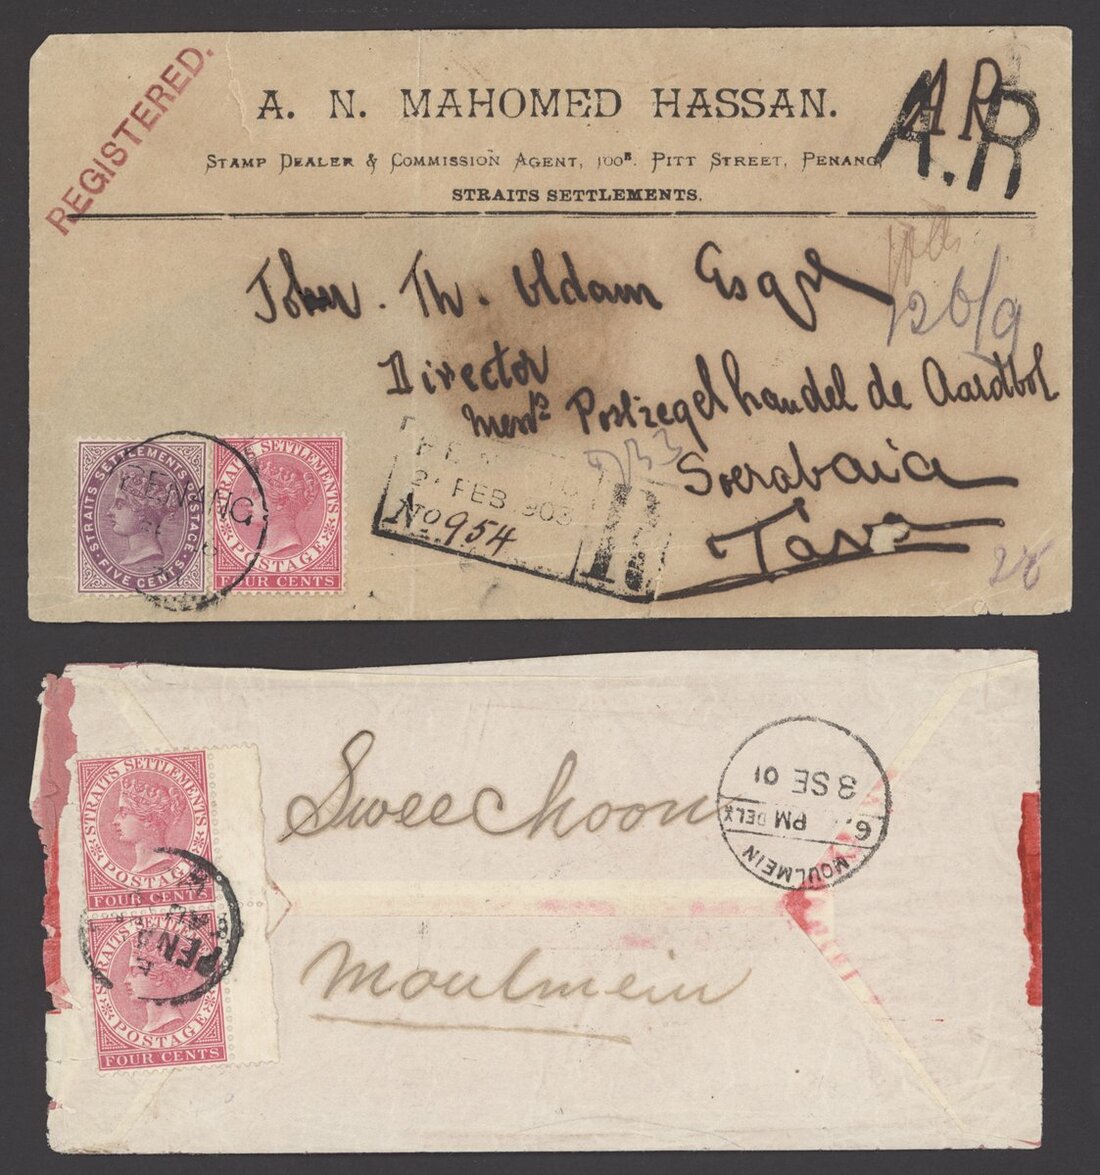 REGISTERED.
A. N. MAHOMED HASSAN.
AR
A.R
STAMP DEALER & COMMISSION AGENT, 100B. PITT STREET, PENANG,
STRAITS SETTLEMENTS.
John. Th. Oldam Esqre
126/9
Director
Messrs Postzegelhandel de Aardbol
Soerabaia
Java
28
FEB 903
No 954
R
PENANG
STRAITS SETTLEMENTS POSTAGE
FIVE CENTS
STRAITS SETTLEMENTS
POSTAGE
FOUR CENTS
Swee Choon
Moulmein
MOULMEIN
6 PM DELY
3 SE 01
STRAITS SETTLEMENTS
POSTAGE
FOUR CENTS
PEN
AU
STRAITS SETTLEMENTS
POSTAGE
FOUR CENTS